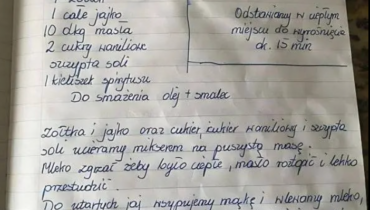 1 całe jajko
10 dkg masła
2 cukry waniliowe
szczypta soli
1 kieliszek spirytusu
Do smażenia olej + smalec
Odstawiamy w ciepłym
miejscu do wyrośnięcia
ok. 15 min
Żółtka i jajko oraz cukier, cukier waniliowy i szczyptę
soli ucieramy mikserem na puszystą masę.
Mleko zgrzać żeby było ciepłe, masło roztopić i lekko
przestudzić.
Do utartych jaj wsypujemy mąkę i wlewamy mleko,